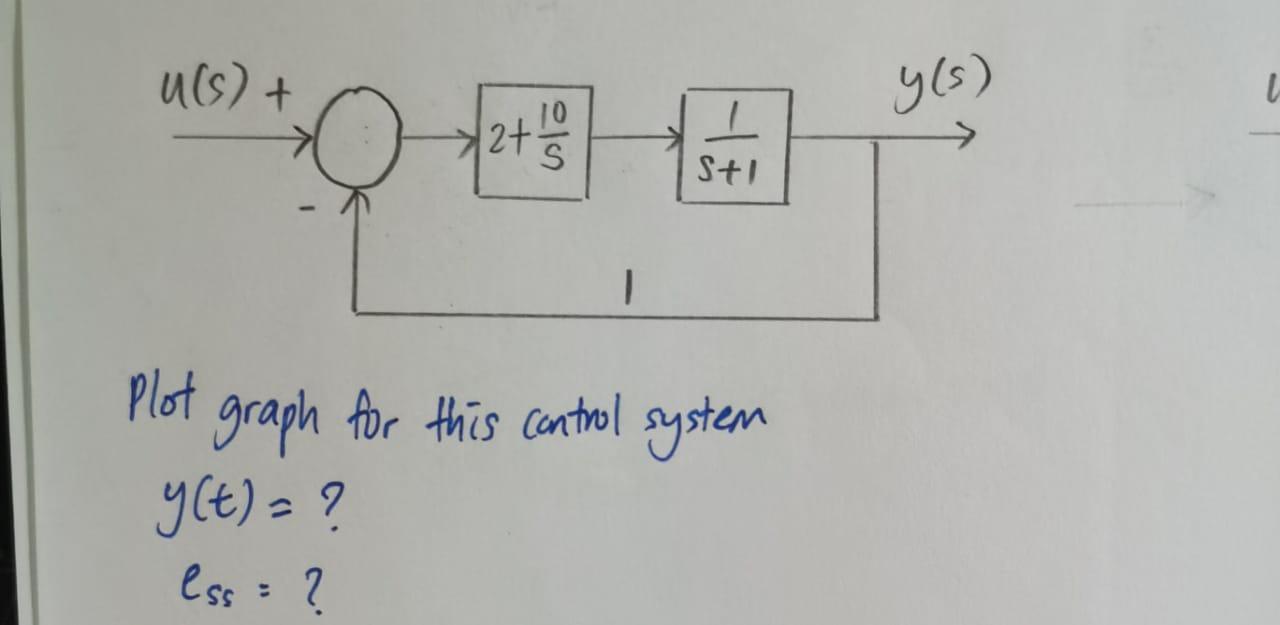 u(s) + y(s)
2+ 10/s 1/s+1
-
1
Plot graph for this control system
y(t) = ?
ess = ?